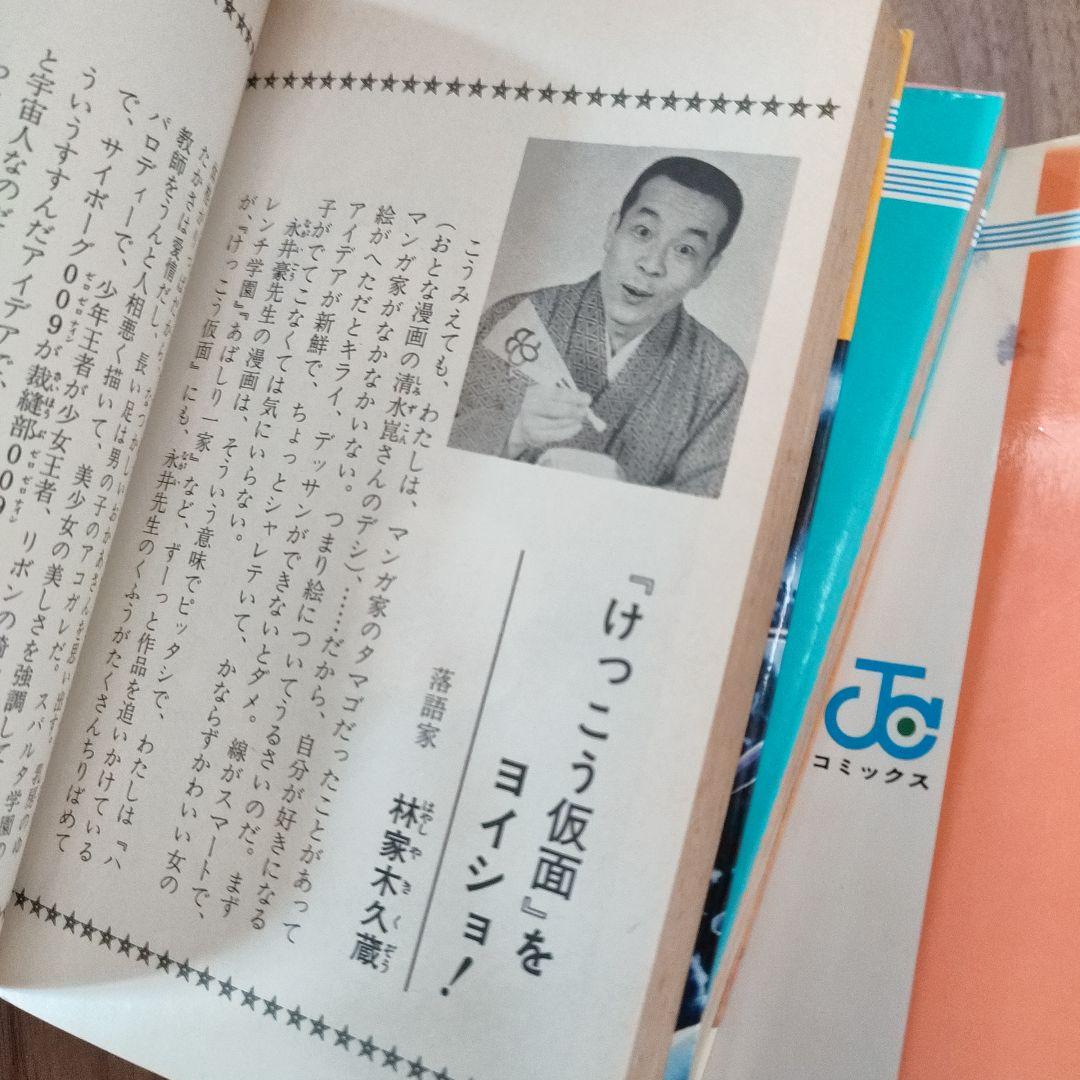 『けっこう仮面』を
ヨイショ！
落語家　林家木久蔵
はやしやきくぞう
こうみえても、わたしは、マンガ家のタマゴだったことがあって
（おとな漫画の清水崑さんのデシ）、……だから、自分が好きになる
しみずこん
マンガ家がなかなかいない。つまり絵についてうるさいのだ。まず
絵がへただとキライ、デッサンができないとダメ。線がスマートで、
アイデアが新鮮で、ちょっとシャレテいて、かならずかわいい女の
子がでてこなくては気にいらない。
永井豪先生の漫画は、そういう意味でピッタシで、わたしは『ハ
ながいごう
レンチ学園』『あばしり一家』など、ずーっと作品を追いかけている
が、『けっこう仮面』にも、永井先生のくふうがたくさんちりばめて
ながい
たかさは愛情だし、長い足は男の子のアコガレだ。スパルタ学園の
教師をうんと人相悪く描いて、美少女の美しさを強調して
パロディーで、少年王者が少女王者、リボンの騎
で、サイボーグ009が裁縫部009
ゼロゼロナイン
さいほうぶゼロゼロナイン
ういうすすんだアイデアで、
と宇宙人なのだ
JC
コミックス